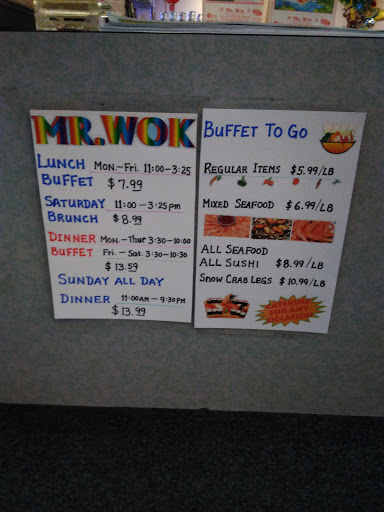 MR.WOK
LUNCH Mon.-Fri. 11:00-3:25
BUFFET $7.99
SATURDAY 11:00-3:25pm
BRUNCH $8.99
DINNER Mon.-Thur 3:30-10:00
BUFFET Fri.-Sat. 3:30-10:30
$13.59
SUNDAY ALL DAY
DINNER 11:00AM-9:30PM
$13.99
BUFFET TO GO
REGULAR ITEMS $5.99/LB
MIXED SEAFOOD $6.99/LB
ALL SEAFOOD
ALL SUSHI $8.99/LB
SNOW CRAB LEGS $10.99/LB
CATERING
FOR ANY
OCCASION